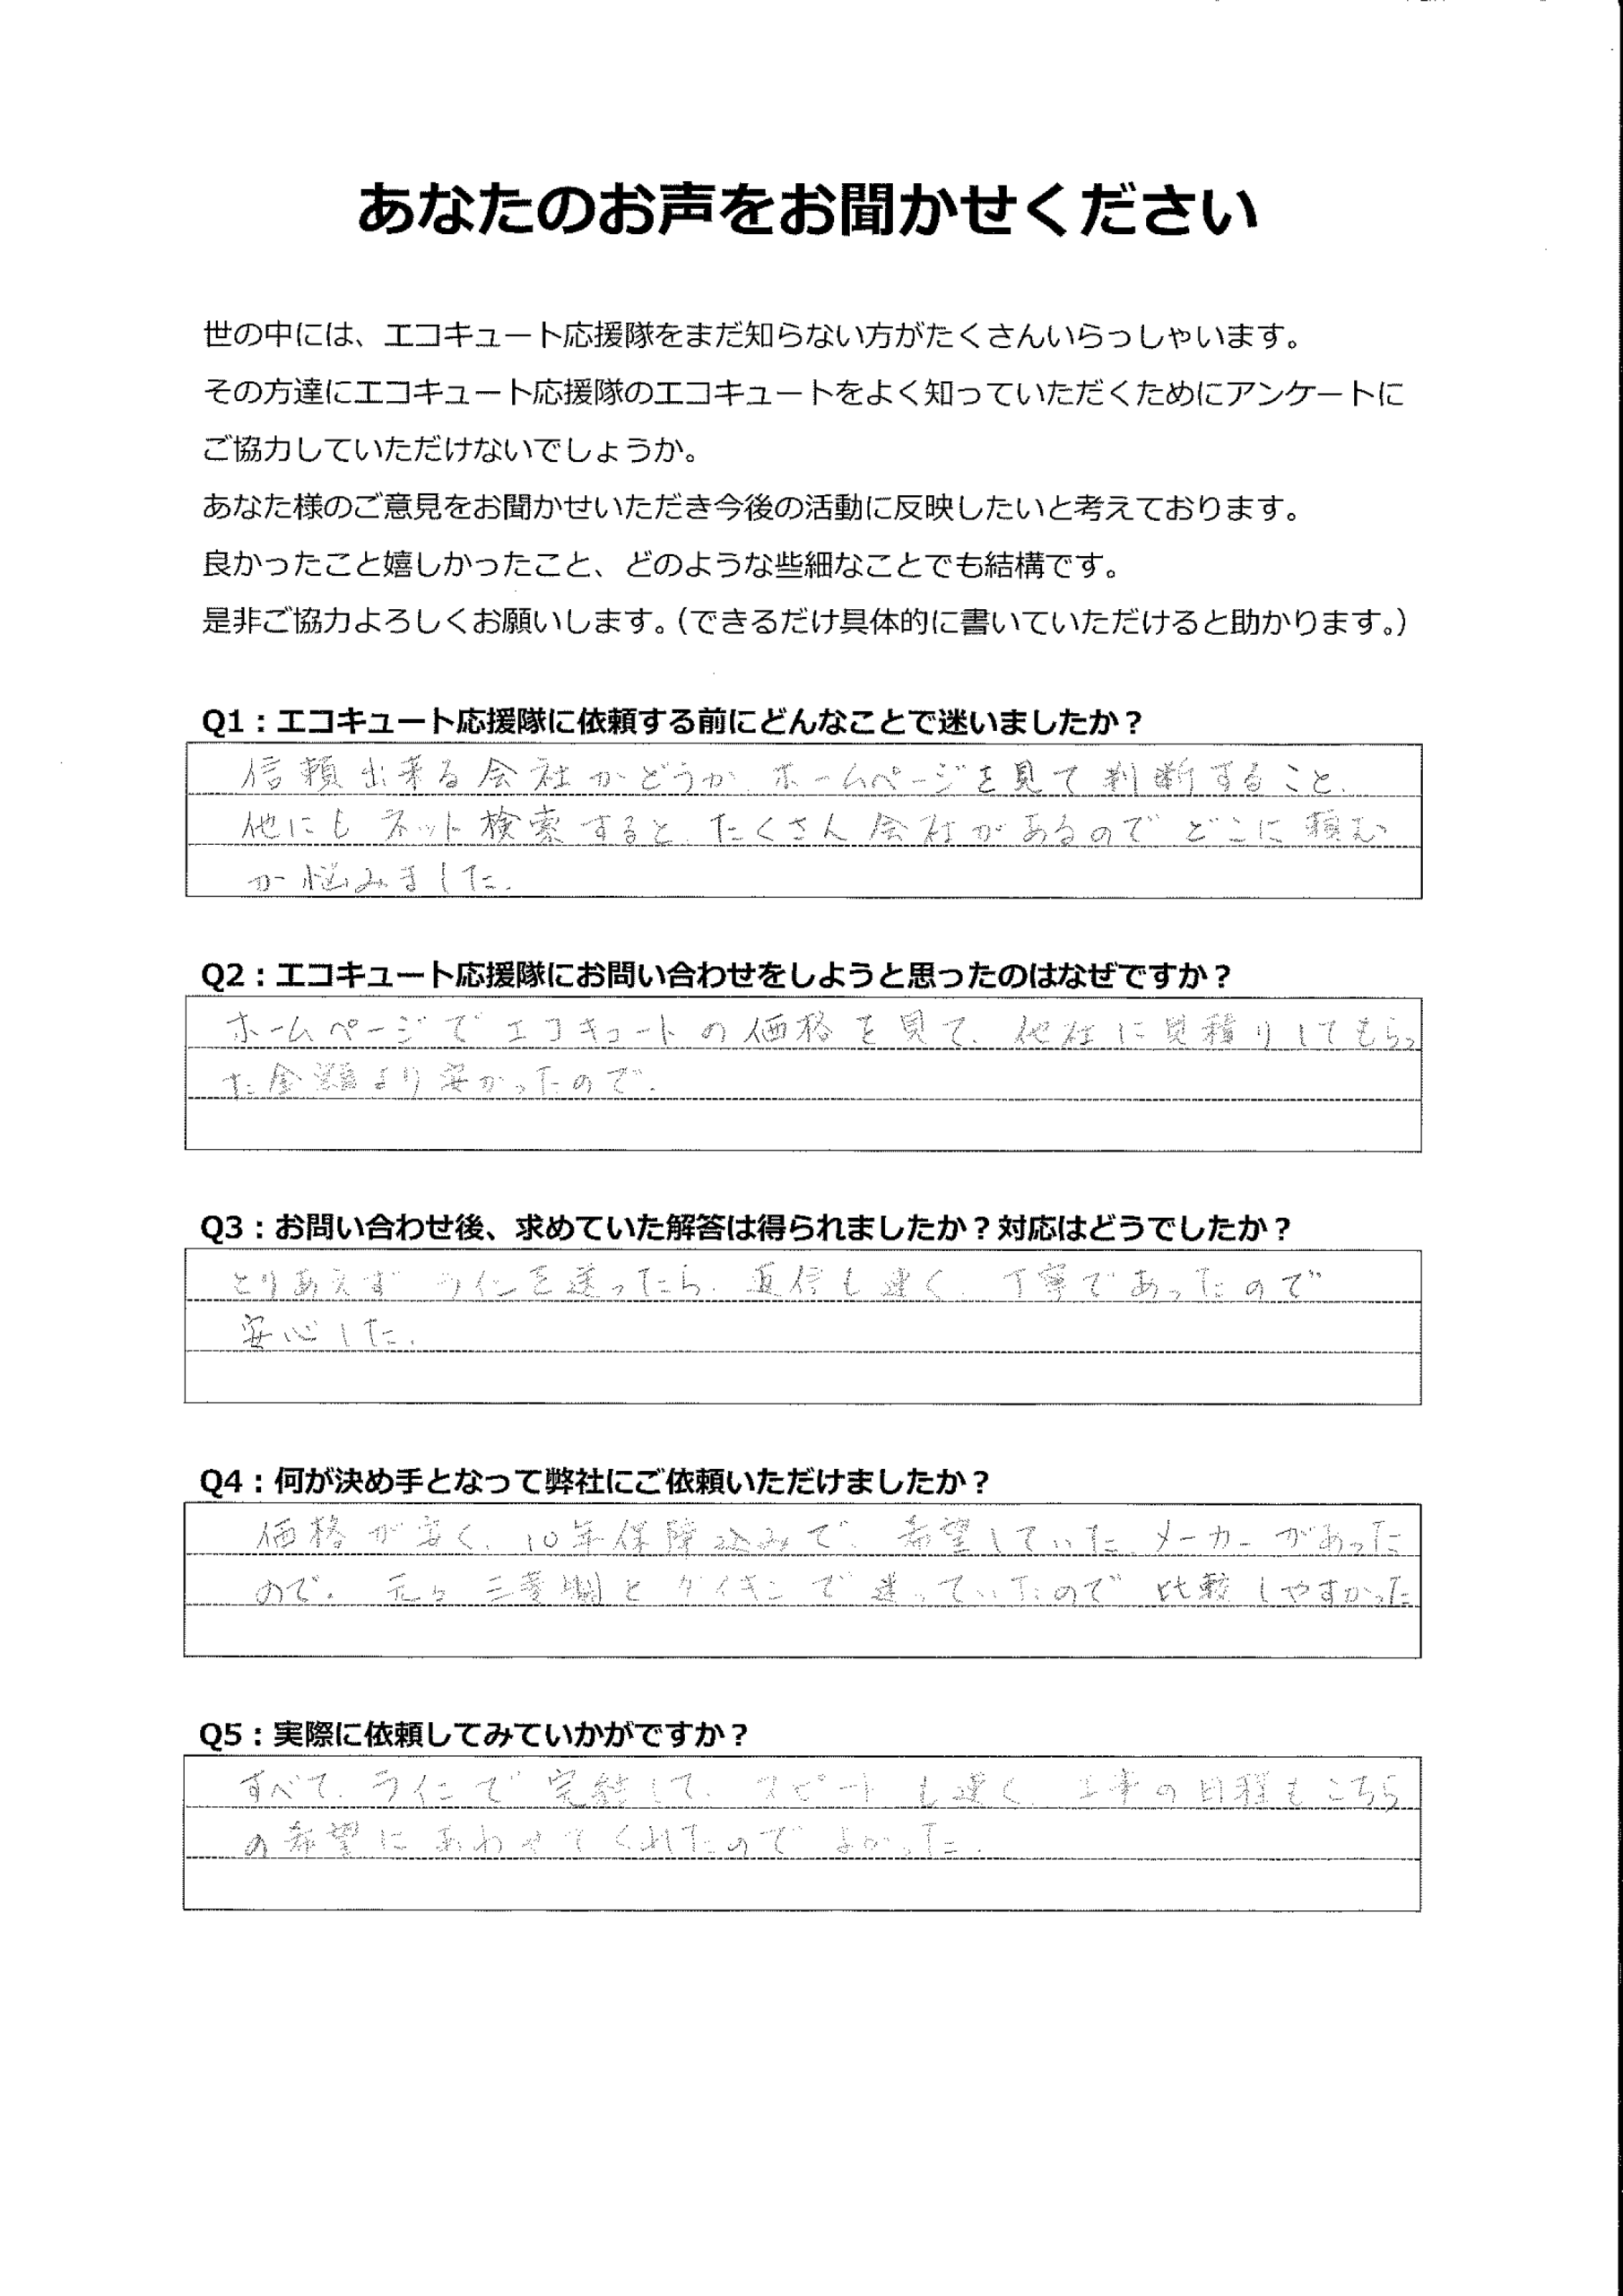 あなたのお声をお聞かせください
世の中には、エコキュート応援隊をまだ知らない方がたくさんいらっしゃいます。
その方達にエコキュート応援隊のエコキュートをよく知っていただくためにアンケートに
ご協力していただけないでしょうか。
あなた様のご意見をお聞かせいただき今後の活動に反映したいと考えております。
良かったこと嬉しかったこと、どのような些細なことでも結構です。
是非ご協力よろしくお願いします。（できるだけ具体的に書いていただけると助かります。）
Q1：エコキュート応援隊に依頼する前にどんなことで迷いましたか？
信頼出来る会社かどうか、ホームページを見て判断すること、
他にもネット検索すると、たくさん会社があるのでどこに頼む
か悩みました。
Q2：エコキュート応援隊にお問い合わせをしようと思ったのはなぜですか？
ホームページでエコキュートの価格を見て、他社に見積りしてもらっ
た金額より安かったので。
Q3：お問い合わせ後、求めていた解答は得られましたか？対応はどうでしたか？
とりあえずラインを送ったら、返信も速く、丁寧であったので
安心した。
Q4：何が決め手となって弊社にご依頼いただけましたか？
価格が安く、10年保障込みで、希望していた、メーカーがあった
ので。元々三菱とダイキンで迷っていたので比較しやすかった
Q5：実際に依頼してみていかがですか？
すべて、ラインで完結して、スピードも速く、工事の日程もこちら
の希望にあわせてくれたのでよかった。